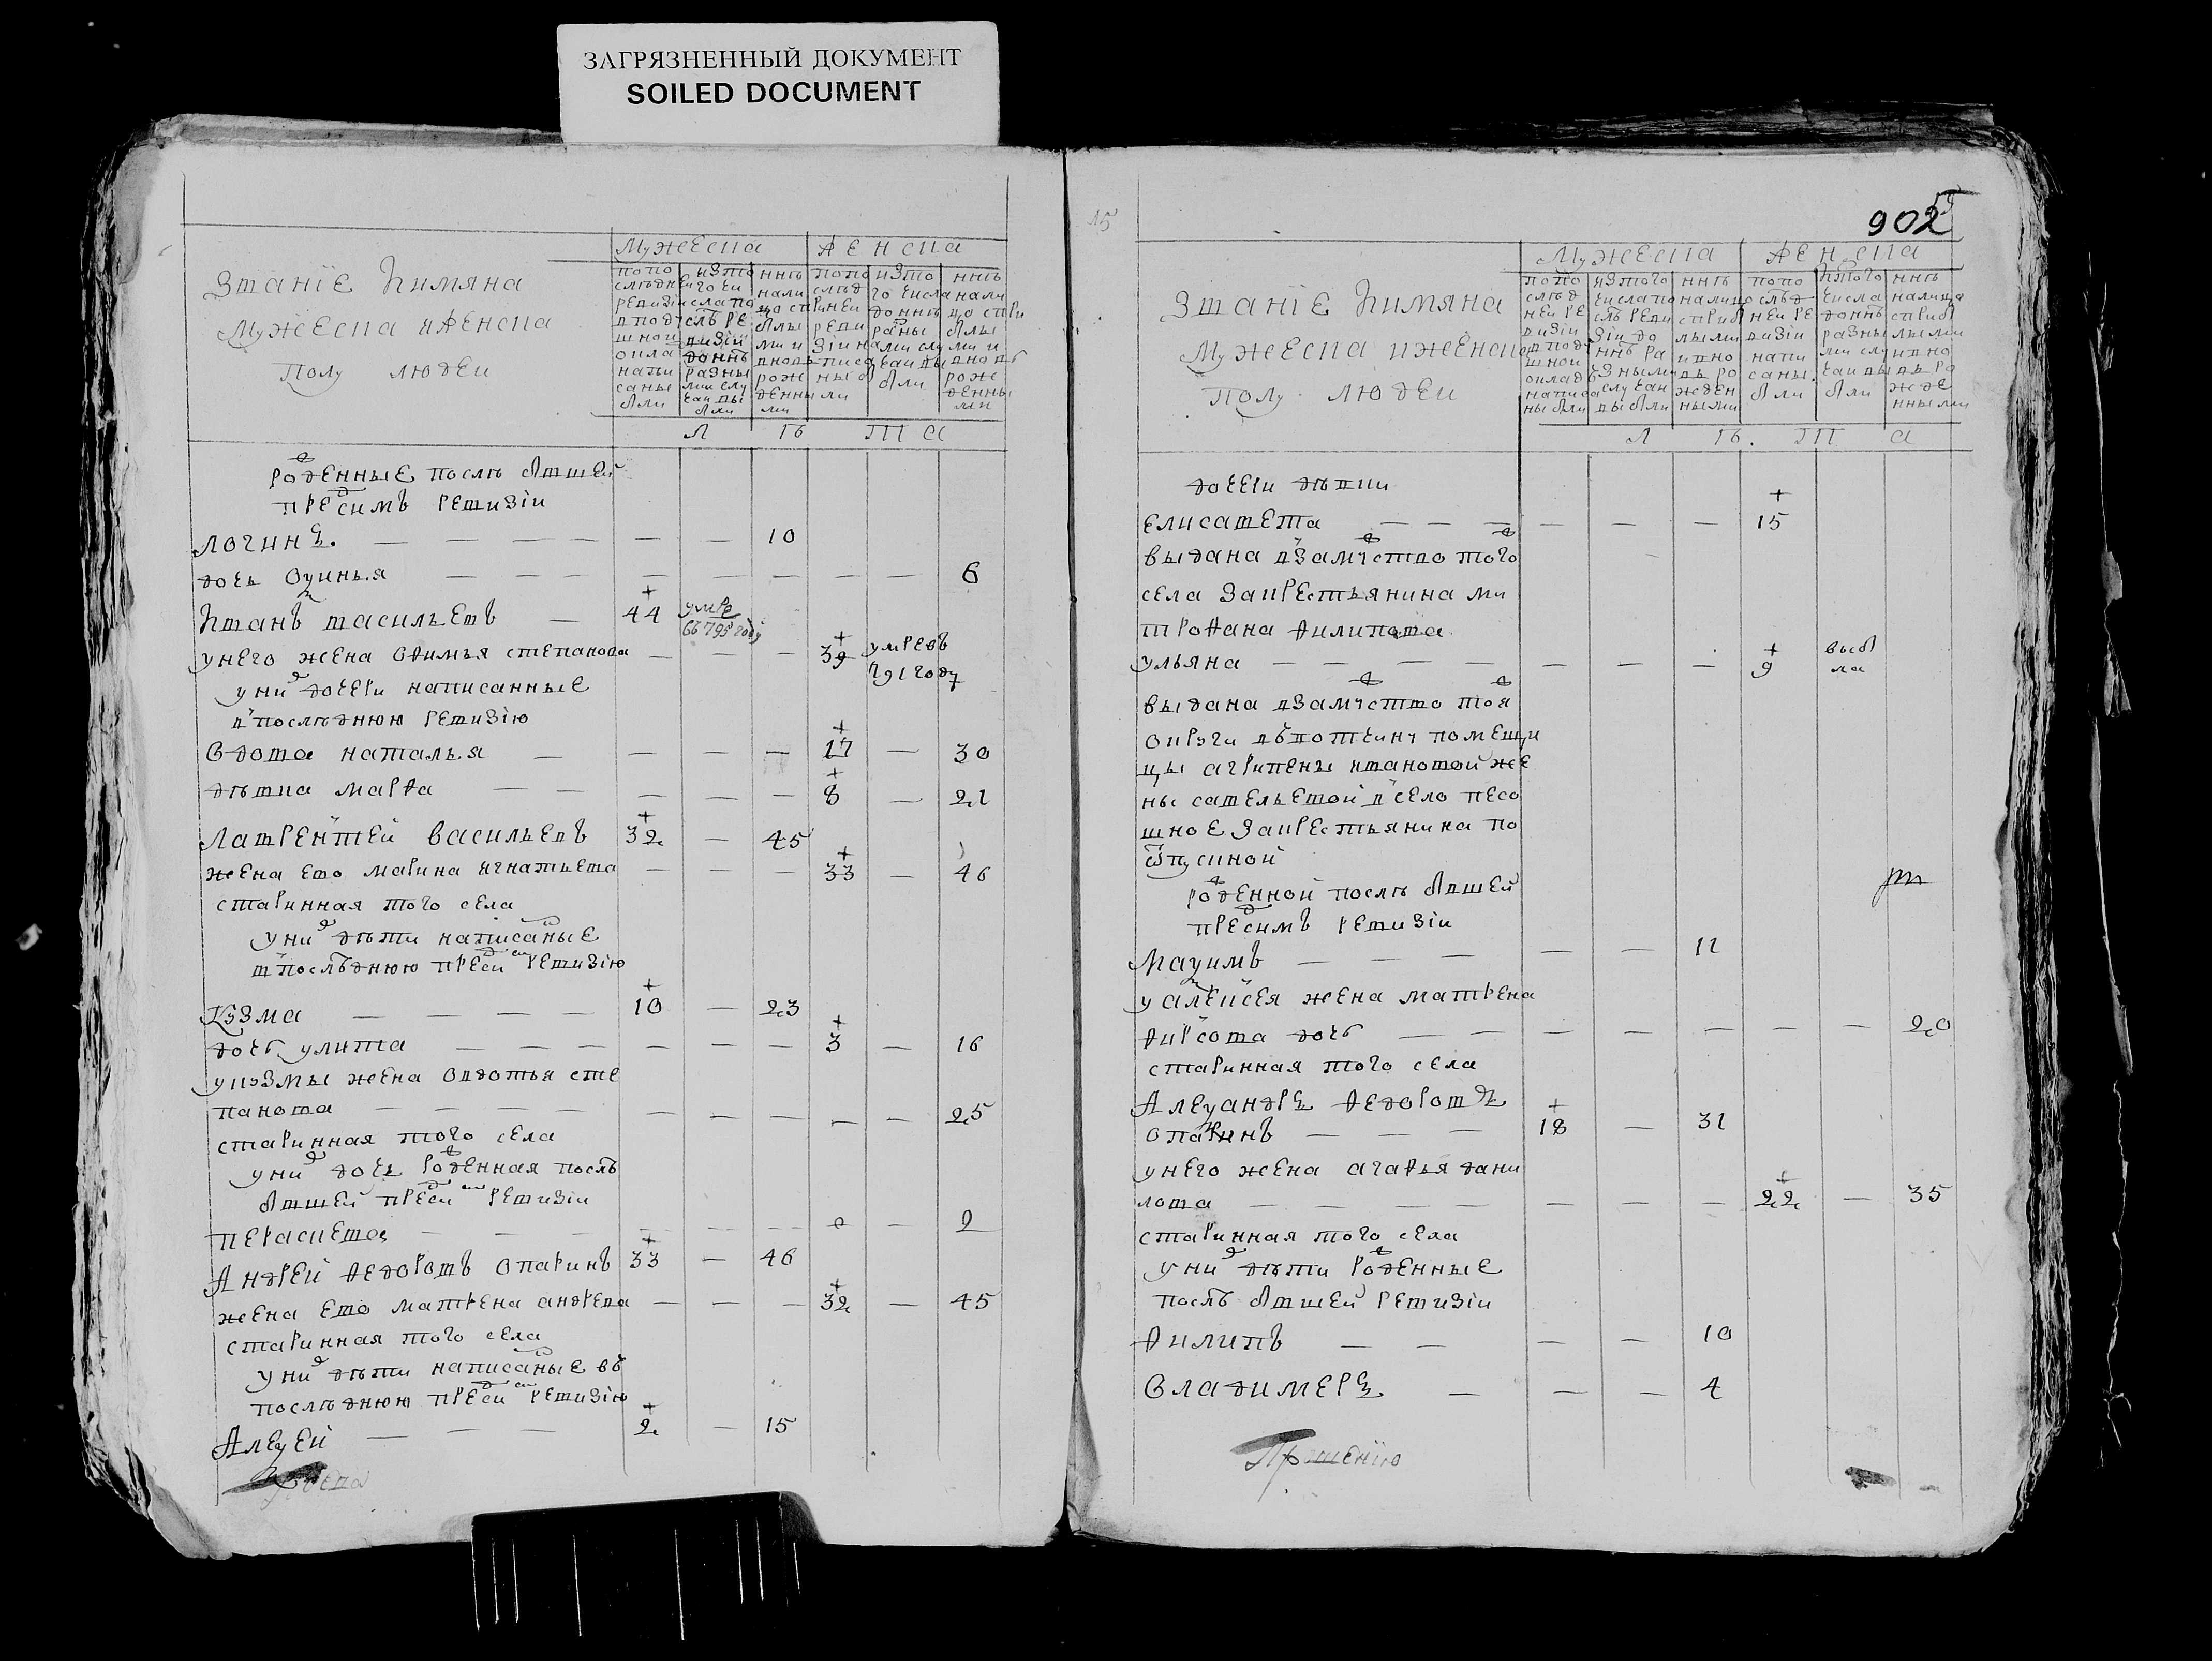 ЗАГРЯЗНЕННЫЙ ДОКУМЕНТ
SOILED DOCUMENT
Званіе Иимяна
Мужеска иженска
полу людеи
Мужеска
Женска
попо слѣднеи ревизіи вподушнои окла написаны были
изтого числа послѣ ревизіи доннѣ разными случаи выбыли
ннѣ налицо сприбылыми и вновь рожденными
попо слѣднеи ревизіи написаны были
изто го числа доннѣ разными случаи выбыли
ннѣ налицо сприбылыми и вновь рожденными
Л ѣ т а
роденные послѣ бывшеи
пресимъ ревизіи
логинъ. 10
дочь Ѳуинья 6
Иванъ васильевъ 44 умре въ 795 году
унего жена Офимья степанова 39 умре въ 791 году
уни дочери написанные
впослѣднюю ревизію
вдова наталья 17 30
дѣвка марфа 8 21
Лаврентей васильевъ 32 45
жена ево марина игнатьева 33 46
старинная того села
уни дѣти написаные
впослѣднюю пресим ревизію
Кузма 10 23
дочь улита 3 16
укузмы жена овдотья сте
панова 25
старинная того села
уни дочь роденная послѣ
бывшей преси ревизіи
Параскева 2
Андрей Ѳедоровъ Опаринъ 33 46
жена ево матрена андрева 32 45
старинная того села
уни дѣти написаные въ
послѣднюю преси ревизію
Алеѯей 2 15
15
902
Званіе Иимяна
Мужеска иженска
полу людеи
Мужеска
Женска
попо слѣднеи ревизіи вподушнои оклад написаны были
изтого числапослѣ ревизіи до ннѣ разными случаи выбыли
ннѣ налицо сприбылыми ивновь рожденными
попо слѣднеи ревизіи написаны были
изтого числа доннѣ разными случаи выбыли
ннѣ налицо сприбылыми ивновь рожденными
Л ѣ т а
дочери дѣвки
елисавета 15
выдана взамуство того
села закрестьянина ми
трофана филипова
ульяна 9 выбыла
выдана взамуство тоя
округи въвотчину помещи
цы агрипены ивановой же
ны савельевой всело песо
шное закрестьянина по
ѿпускной
роденной послѣ бывшей
пресимъ ревизіи
Маѯимъ 11
у алеѯея жена матрена
фирсова дочь 20
старинная того села
Алеѯандръ Ѳедоровъ
опаринъ 18 31
унего жена агафья дани
лова 22 35
старинная того села
уни дѣти роденные
послѣ бывшей ревизіи
Филипъ 10
Владимеръ. 4
Прошенію